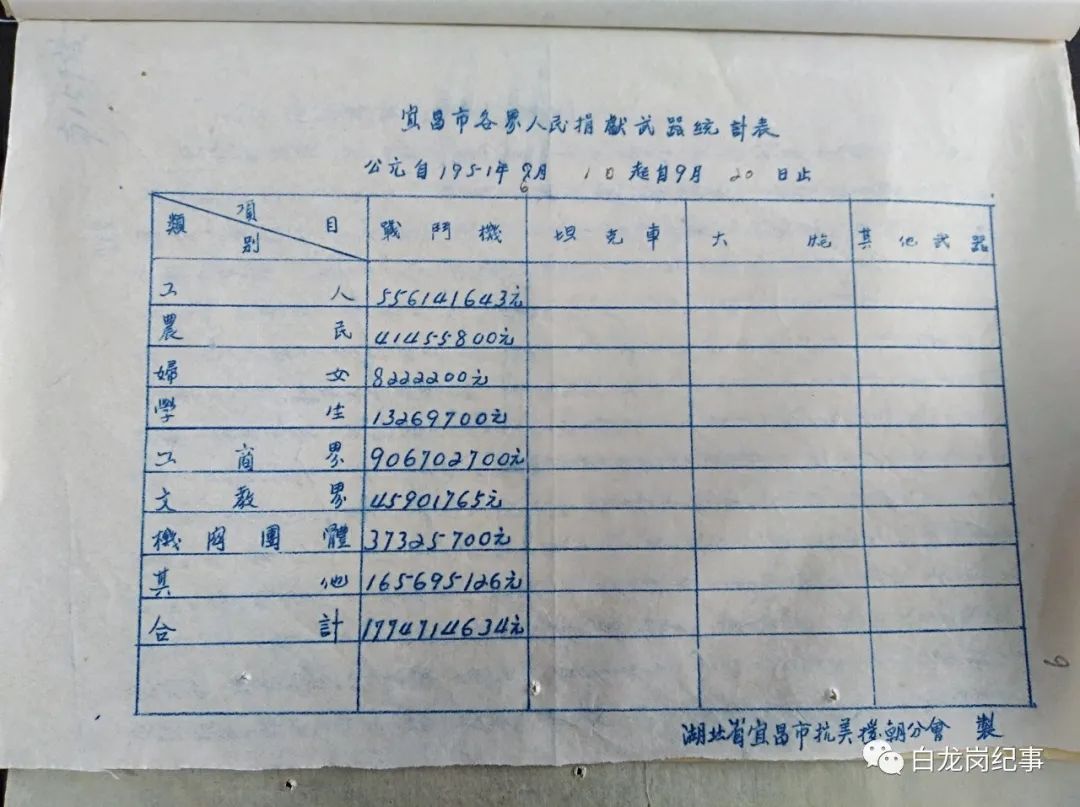 宜昌市各界人民捐獻武器統計表
公元自1951年9月 10起自9月 20日止
6
項目
類別 戰鬥機 坦克車 大炮 其他武器
工人 556141643元
農民 41455800元
婦女 8222200元
學生 13269700元
工商界 906702700元
文教界 45901765元
機関團體 37325700元
其他 165695126元
合計 1774714634元
6
湖北省宜昌市抗美援朝分會 製
白龙岗纪事